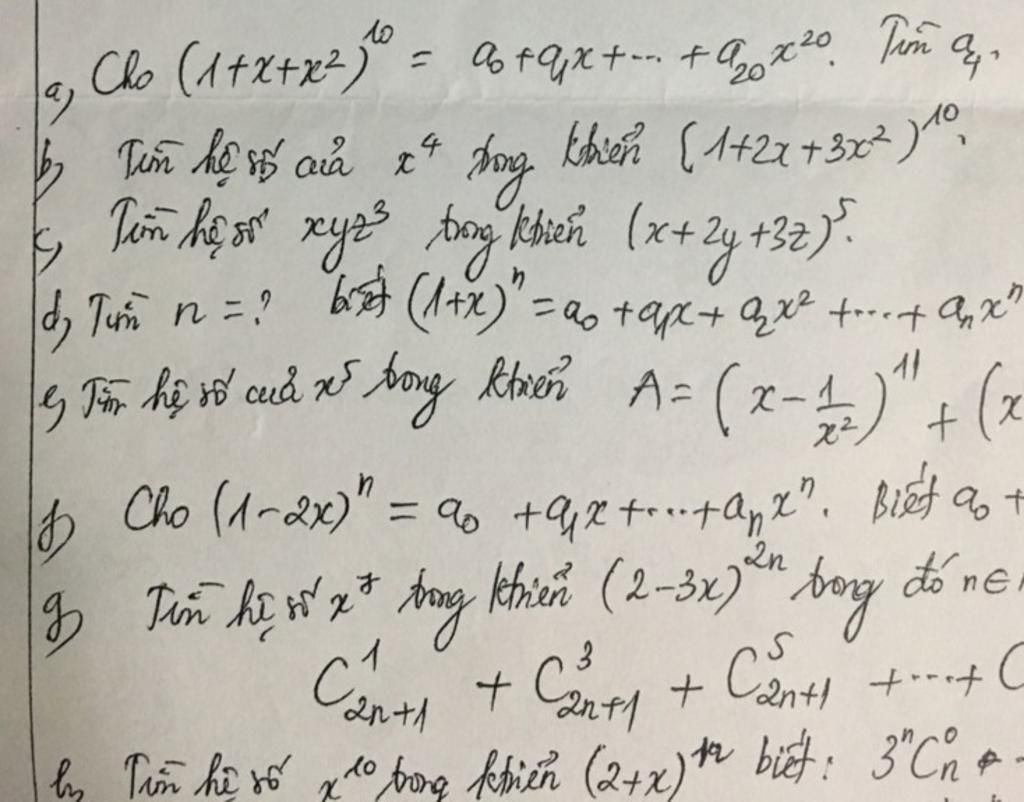 a, Cho (1+x+x²)¹⁰ = a₀+a₁x+...+a₂₀x²⁰. Tìm a₄.
b, Tìm hệ số của x⁴ trong khiển (1+2x+3x²)¹⁰.
c, Tìm hệ số xyz³ trong khiển (x+2y+3z)⁵.
d, Tìm n = ? biết (1+x)ⁿ = a₀ + a₁x + a₂x² +...+ aₙxⁿ
e, Tìm hệ số của x⁵ trong khiển A = (x - 1/x²)¹¹ + (x
f, Cho (1-2x)ⁿ = a₀ + a₁x +...+ aₙxⁿ. Biết a₀ +
g, Tìm hệ số x⁷ trong khiển (2-3x)²ⁿ trong đó n∈
C¹₂ₙ₊₁ + C³₂ₙ₊₁ + C⁵₂ₙ₊₁ +...+ C
h, Tìm hệ số x¹⁰ trong khiển (2+x)ⁿ biết: 3ⁿC⁰ₙ